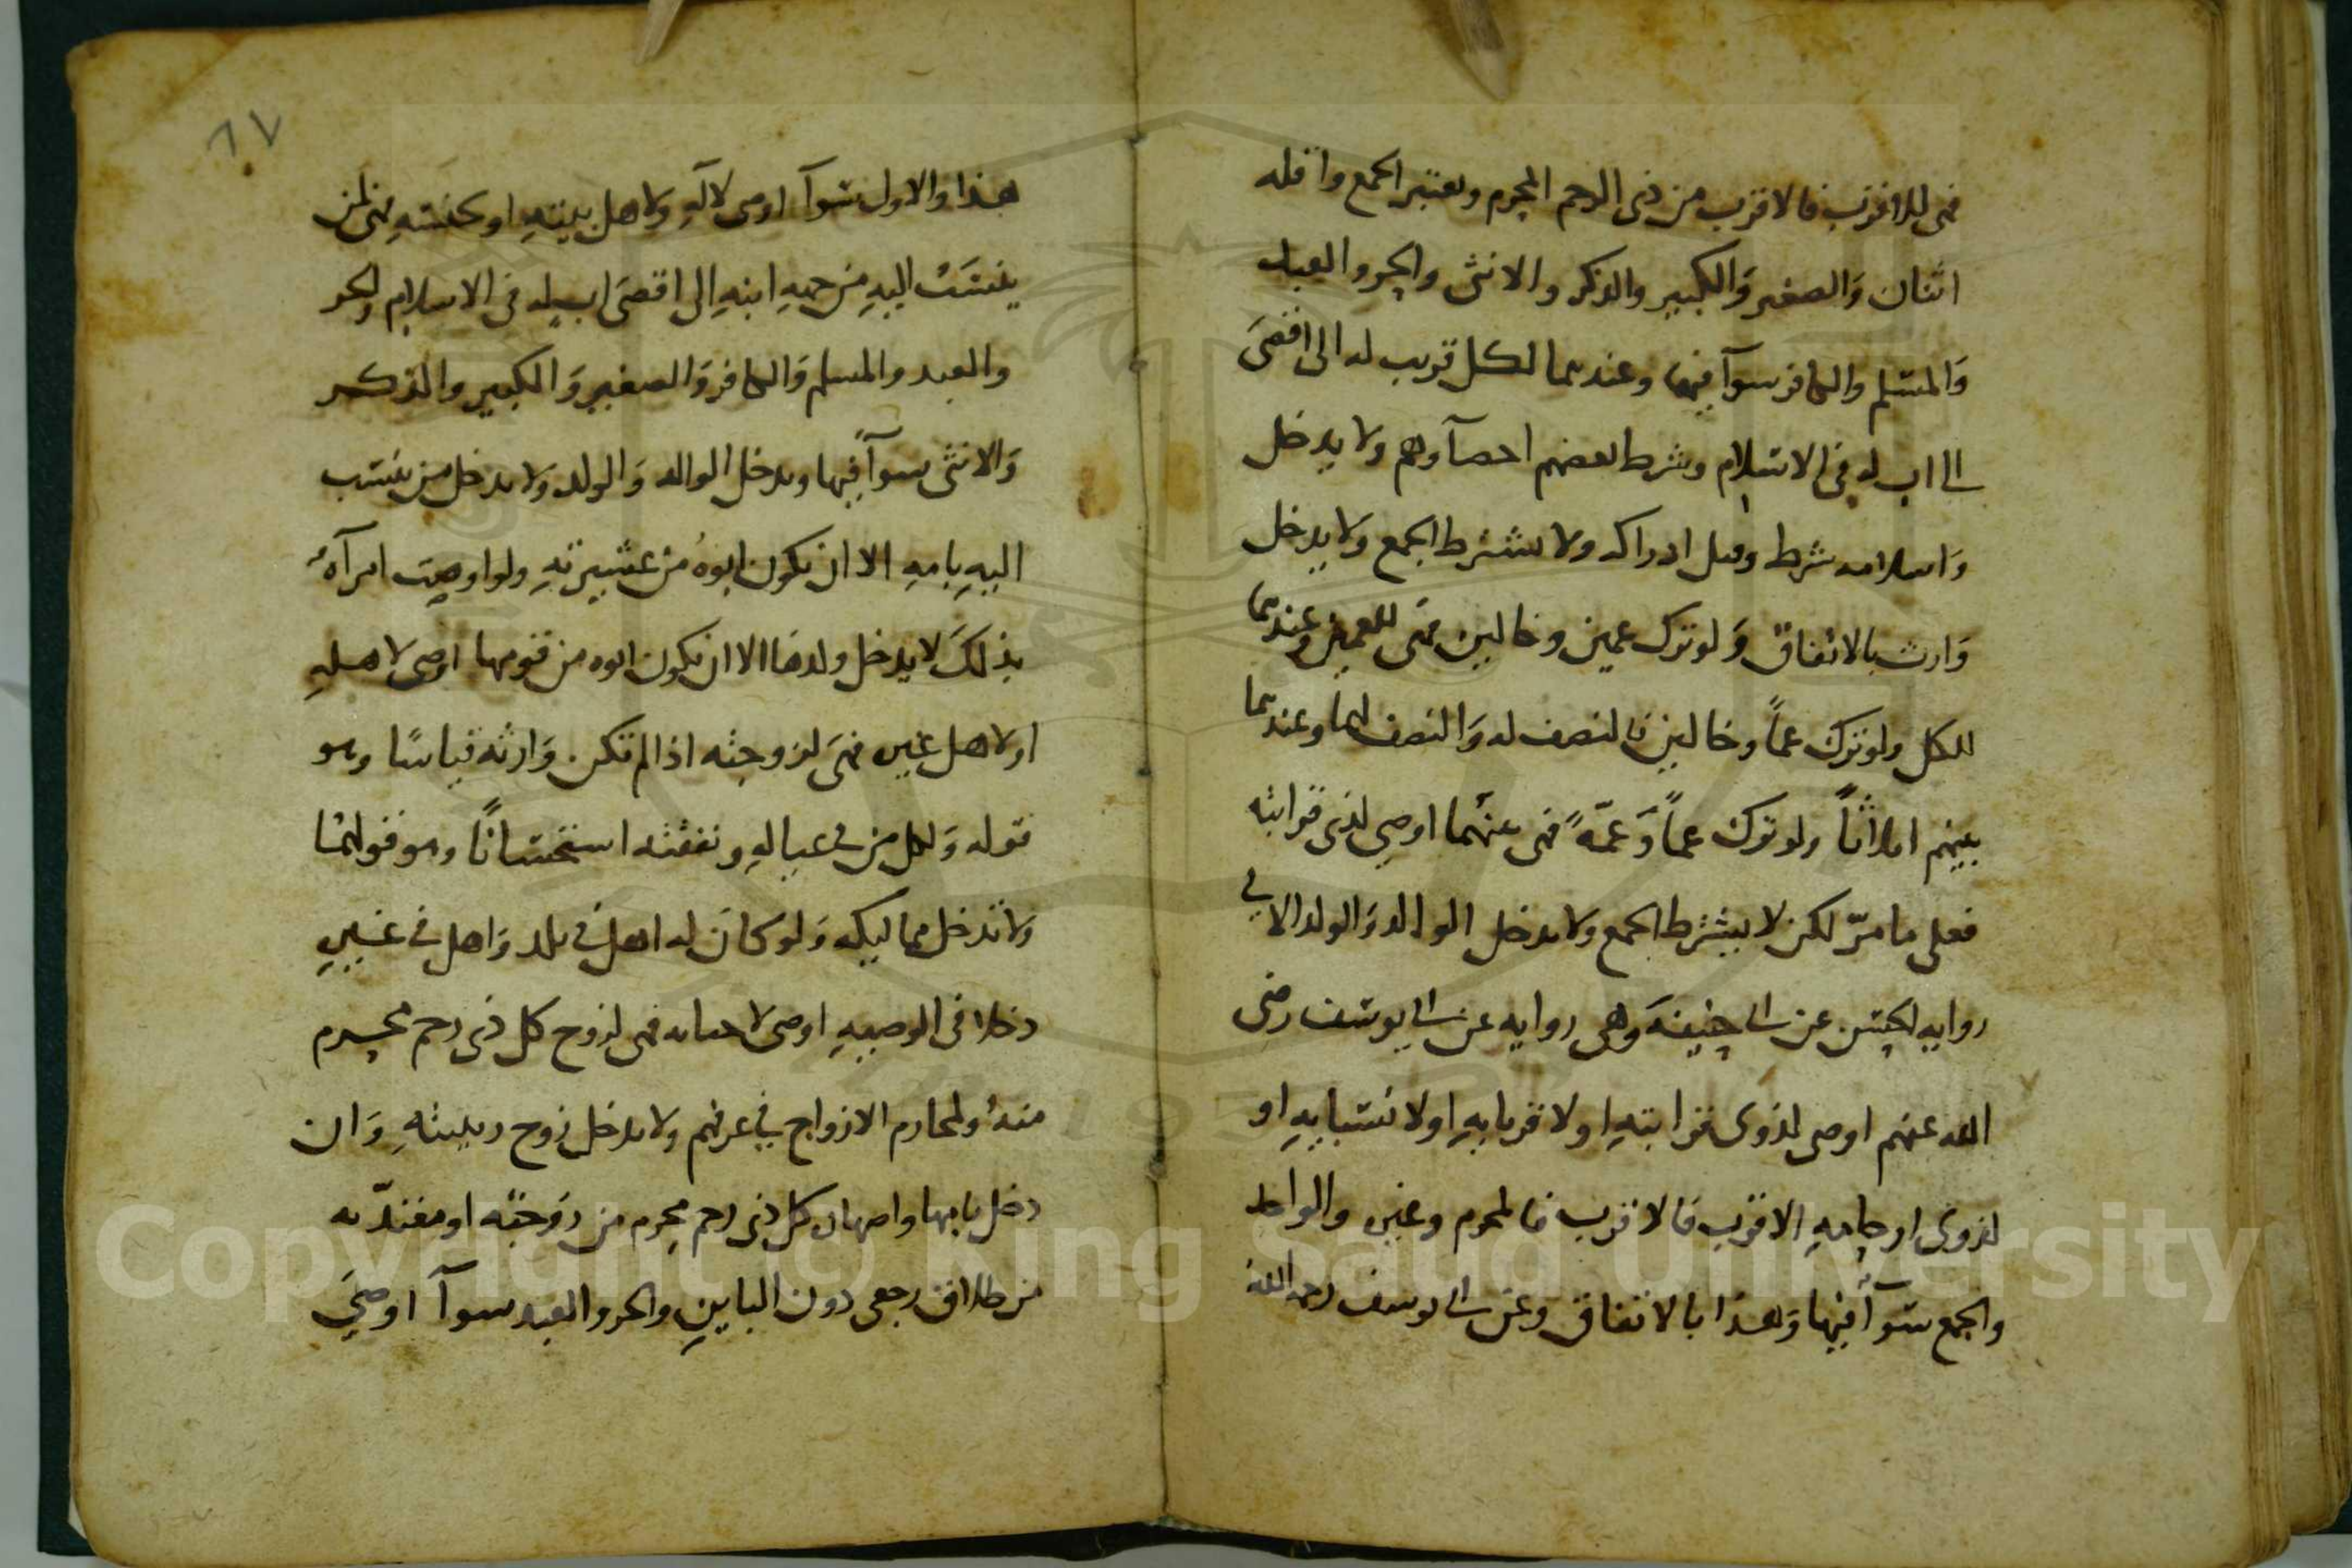 فهى للاقرب فالاقرب من ذى الرحم المحرم ويعتبر الجمع واقله
اثنان وَالصغير وَالكبير والذكر والانثى والحر والعبد
وَالمسلم والكافر سوآ فيها وعندهما لكل قريب له الى اقصى
اب له فى الاسلام وشرط بعضهم احصآوهم ولا يدخل
وَاسلامه شرط وقيل ادراكه ولا يشترط الجمع ولا يدخل
وَارث بالاتفاق وَلو ترك عمين وخالين فهى للعمين وعندهما
للكل ولو ترك عماً وخالين فالنصف له وَالنصف لهما وعندهما
بينهم اثلاثاً ولو ترك عماً وَعمّةً فهى بينهما اوصى لذى قرابته
فعلى ما مرّ لكن لا يشترط الجمع ولا يدخل الوالد وَالولد الا فى
روايه الحسن عن ابى حنيفةَ وَهى روايه عن ابى يوسف رضى
الله عنهم اوصى لذوى قرابتهِ او لاقربايهِ او لانسبايهِ او
لذوى ارحامهِ الاقرب فالاقرب فالمحرم وغيره والواحد
والجمع سَوآ فيها وَهذا بالاتفاق وعن ابى يوسف رحمه الله
هذا والاول سَوآ اوصى لآلهِ ولاهل بيتهِ او لجنسهِ فهى لمن
ينتسَبُ اليهِ من جهه ابنهِ الى اقصَى اب له فى الاسلام والحر
والعبد والمسلم وَالكافر وَالصغير وَالكبير والذكر
وَالانثى سوآ فيها ويدخل الوالد وَالولد ولا يدخل من ينتسب
اليهِ بامهِ الا ان يكون ابوهُ من عشيرتهِ ولو اوصت امرآةُ
بذلكَ لا يدخل ولدهَا الا ان يكون ابوه من قومها اوصى لاهلهِ
او لاهل غيره فهىَ لزوجته اذا لم تكن وَارثه قياسًا وهو
قوله وَلكل من فى عيالهِ ونفقته استحسَانًا وهو قولهمَا
ولا تدخل مماليكه وَلو كانَ له اهل فى بلد وَاهل فى غيرهِ
دخلا فى الوصيهِ اوصى فهى لزوج كل ذى رحم محرم
منهُ ولمحارم الازواج فى عرفهم ولا يدخل زوج ربيبتهِ وَان
دخل بامها واصهاره كل ذى رحم محرم من زوجته او معتدّته
من طلاق رجعى دون الباينِ والحر والعبد سوآ اوصَى
٦٧
Copyright © King Saud University